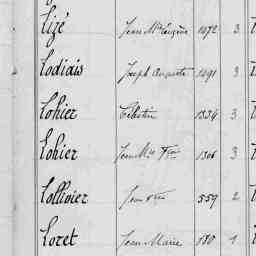 Lizé Jean Mie Eugène 1072 3
Lodiais Joseph Auguste 1491 3
Lohier Célestin 1334 3
Lohier Jean Mie Fçois 1306 3
Lollivier Jean 559 2
Loret Jean Marie 180 1